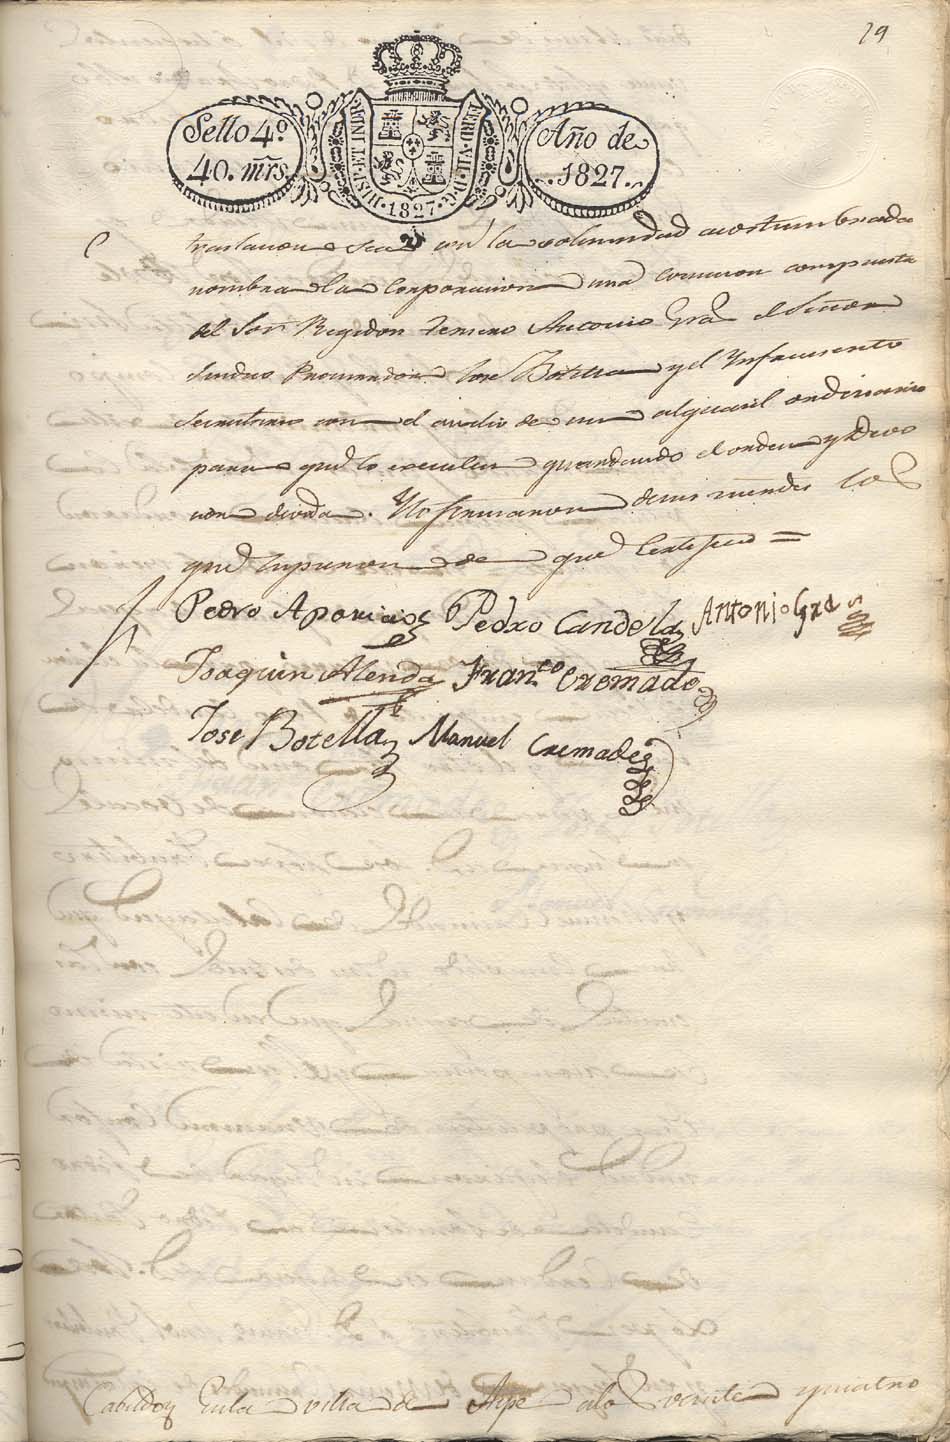 29
Sello 4º
40. mr̃s
HISP. ET IND. R.
FERD. VII. D. G.
1827
Año de
1827.
traslacion sea con la solemnidad acostumbrada
nombra la Corporacion una Comicion compuesta
del Sor. Regidor Antonio Gra el Señor
Sindico Procurador Jose Botella y el Infraescrito
Secretario con el auxilio de un alguasil ordinario
para que lo executen guardando el orden y
devida. Y lo firmaron de sus mersedes los
que supieron de que Certifico =
Pedro Aparicio Pedro Candela Antonio Gra
Joaquin Alenda Fran.co Cremades
Jose Botella Manuel Cremades
Cabildo En la villa de Aspe a los veinte y quatro